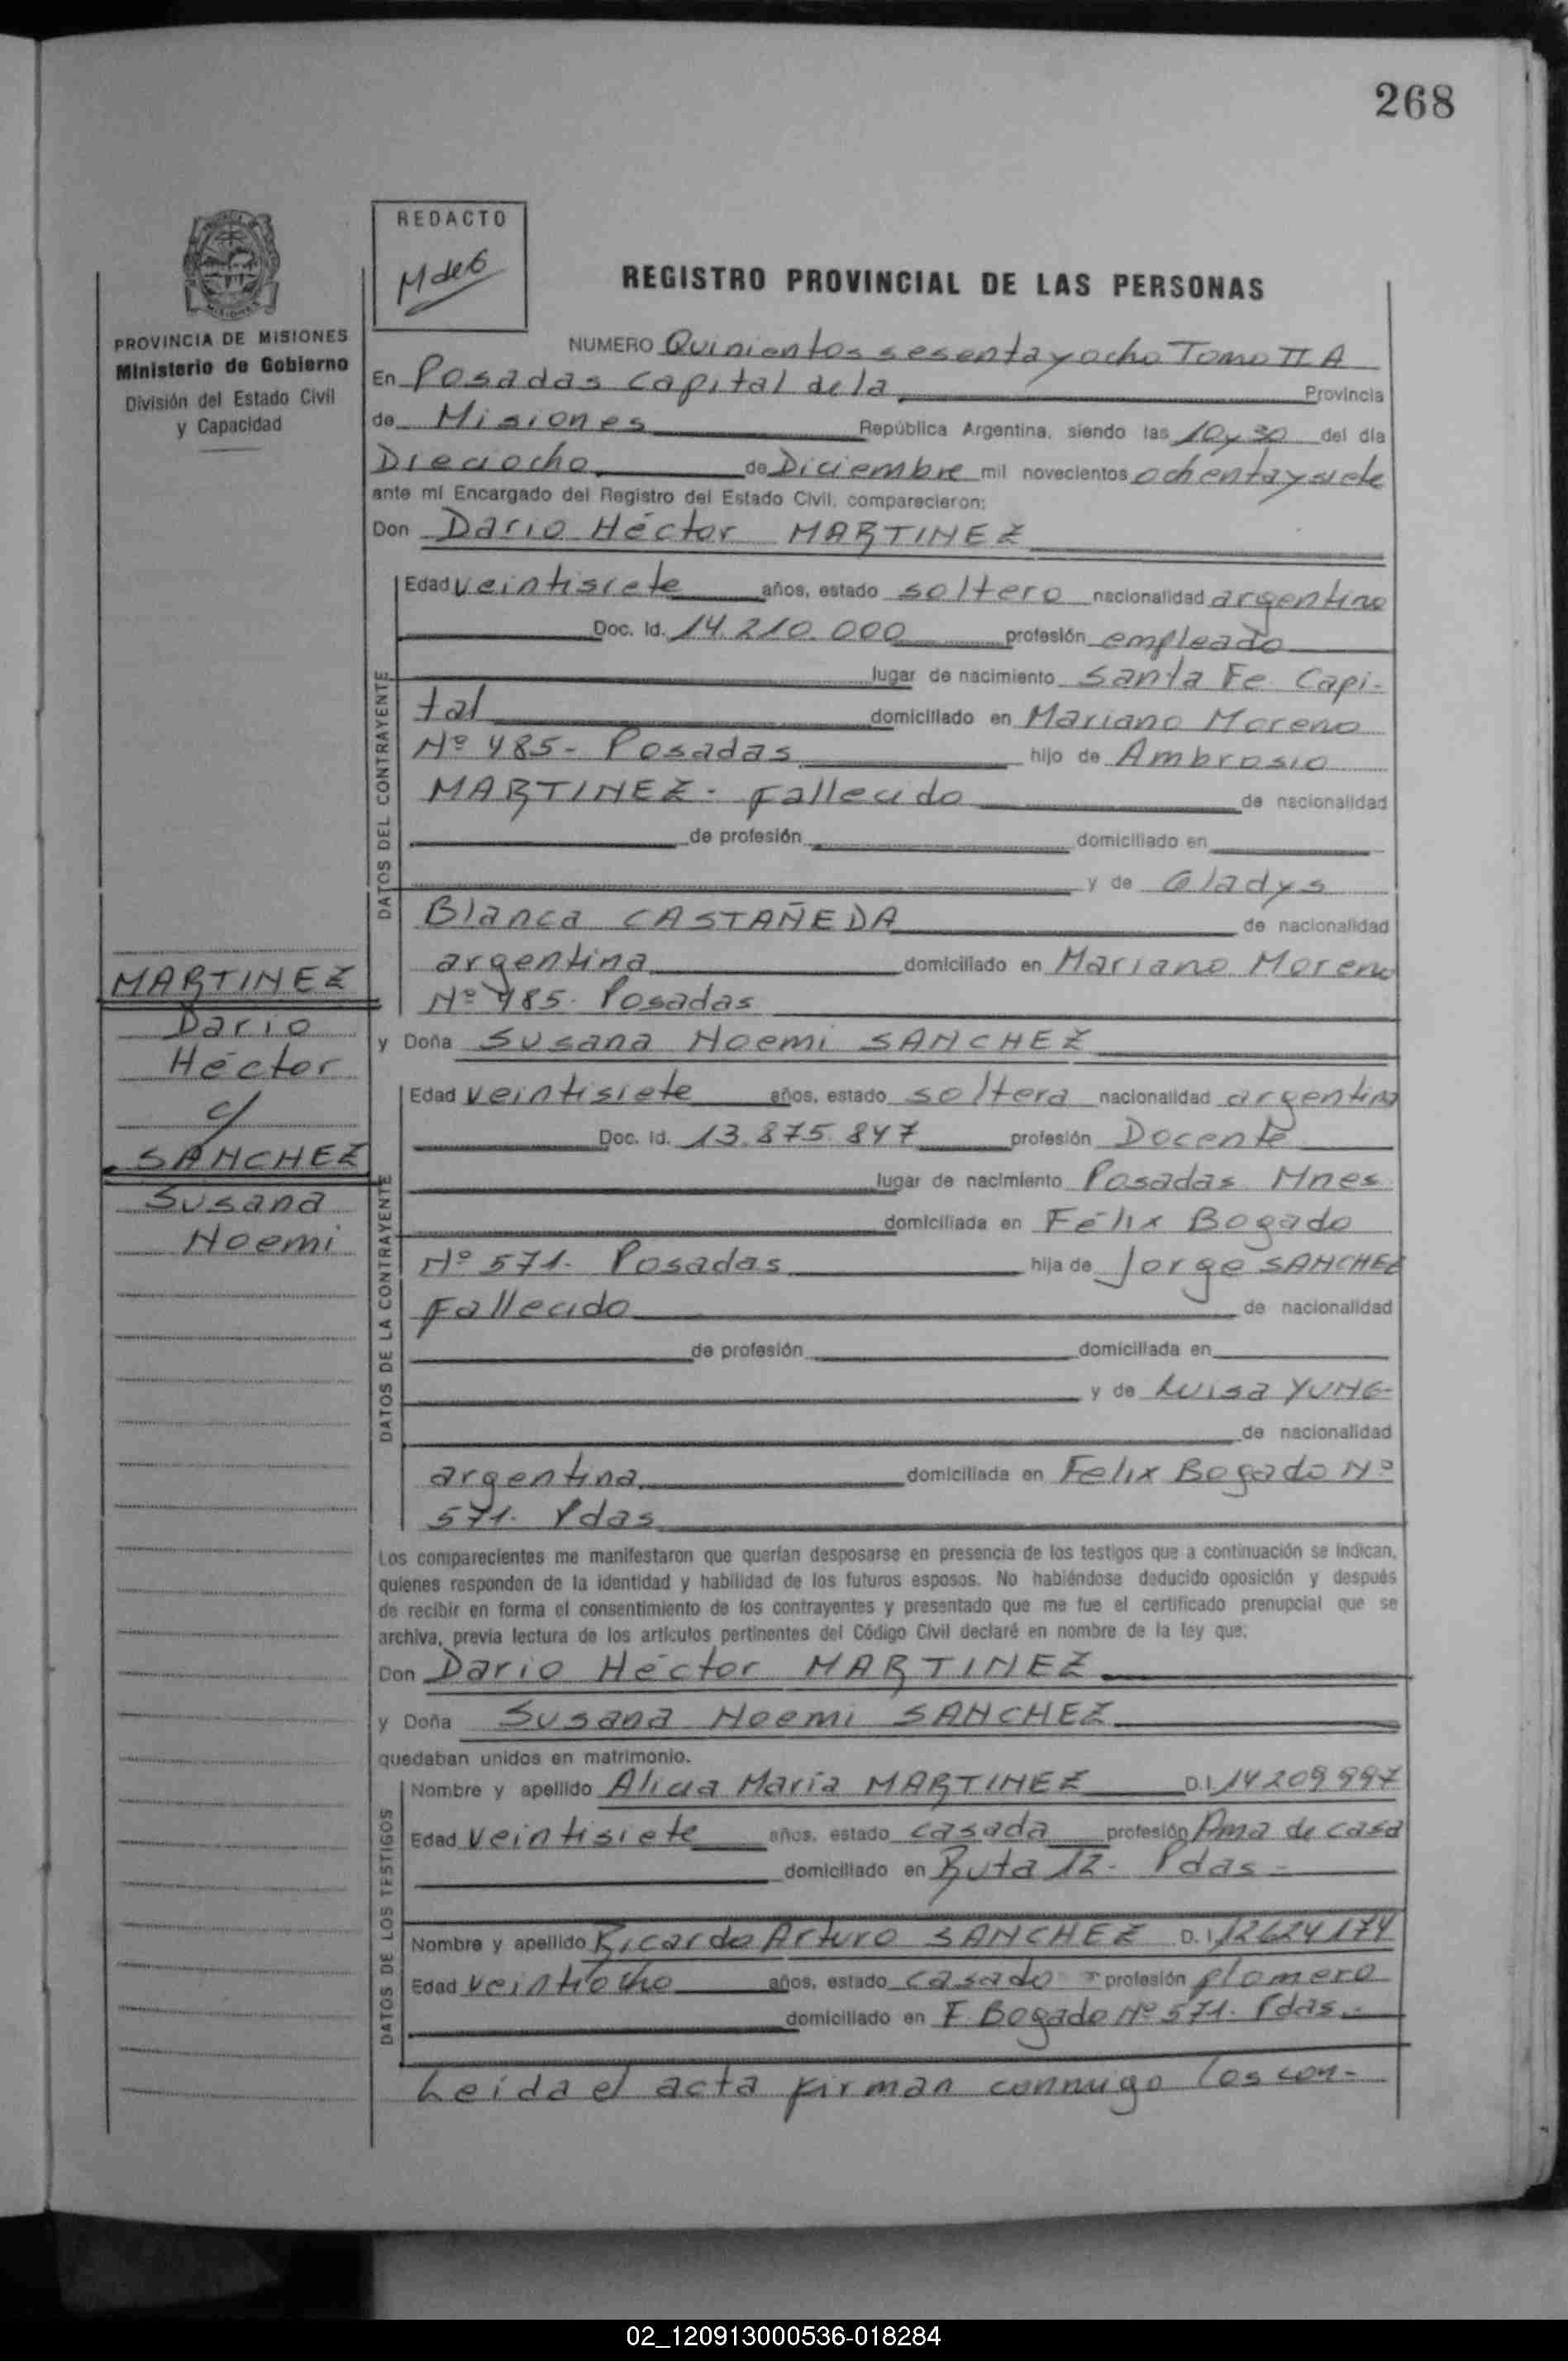 268
REDACTO
M de G
REGISTRO PROVINCIAL DE LAS PERSONAS
PROVINCIA DE MISIONES
Ministerio de Gobierno
División del Estado Civil
y Capacidad
NUMERO Quinientos sesenta y ocho Tomo II A
En Posadas capital de la Provincia
de Misiones República Argentina, siendo las 10 y 30 del día
Dieciocho de Diciembre mil novecientos ochenta y siete
ante mí Encargado del Registro del Estado Civil, comparecieron:
Don Dario Héctor MARTINEZ
DATOS DEL CONTRAYENTE
Edad veintisiete años, estado soltero nacionalidad argentino
Doc. Id. 14.210.000 profesión empleado
lugar de nacimiento Santa Fe. Capi-
tal domiciliado en Mariano Moreno
Nº 485- Posadas hijo de Ambrosio
MARTINEZ- Fallecido de nacionalidad
de profesión domiciliado en
y de Gladys
Blanca CASTAÑEDA de nacionalidad
argentina domiciliado en Mariano Moreno
Nº 485. Posadas
MARTINEZ
Dario
Héctor
c/
SANCHEZ
Susana
Noemi
y Doña Susana Noemi SANCHEZ
DATOS DE LA CONTRAYENTE
Edad veintisiete años, estado soltera nacionalidad argentina
Doc. Id. 13.875.847 profesión Docente
lugar de nacimiento Posadas Mnes
domiciliada en Félix Bogado
Nº 571- Posadas hija de Jorge SANCHEZ
Fallecido de nacionalidad
de profesión domiciliada en
y de Luisa YUNG-
de nacionalidad
argentina domiciliada en Felix Bogado Nº
571. Pdas
Los comparecientes me manifestaron que querían desposarse en presencia de los testigos que a continuación se indican,
quienes responden de la identidad y habilidad de los futuros esposos. No habiéndose deducido oposición y después
de recibir en forma el consentimiento de los contrayentes y presentado que me fue el certificado prenupcial que se
archiva, previa lectura de los artículos pertinentes del Código Civil declaré en nombre de la ley que:
Don Dario Héctor MARTINEZ
y Doña Susana Noemi SANCHEZ
quedaban unidos en matrimonio.
DATOS DE LOS TESTIGOS
Nombre y apellido Alicia María MARTINEZ D.I. 14209997
Edad veintisiete años, estado casada profesión Ama de casa
domiciliado en Ruta 12- Pdas-
Nombre y apellido Ricardo Arturo SANCHEZ D.I. 12624174
Edad veintiocho años, estado casado profesión plomero
domiciliado en F. Bogado Nº 571. Pdas.-
Leida el acta firman conmigo los con-
02_120913000536-018284